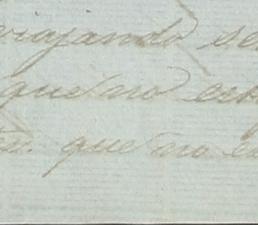 viajando se
que no est
que no e